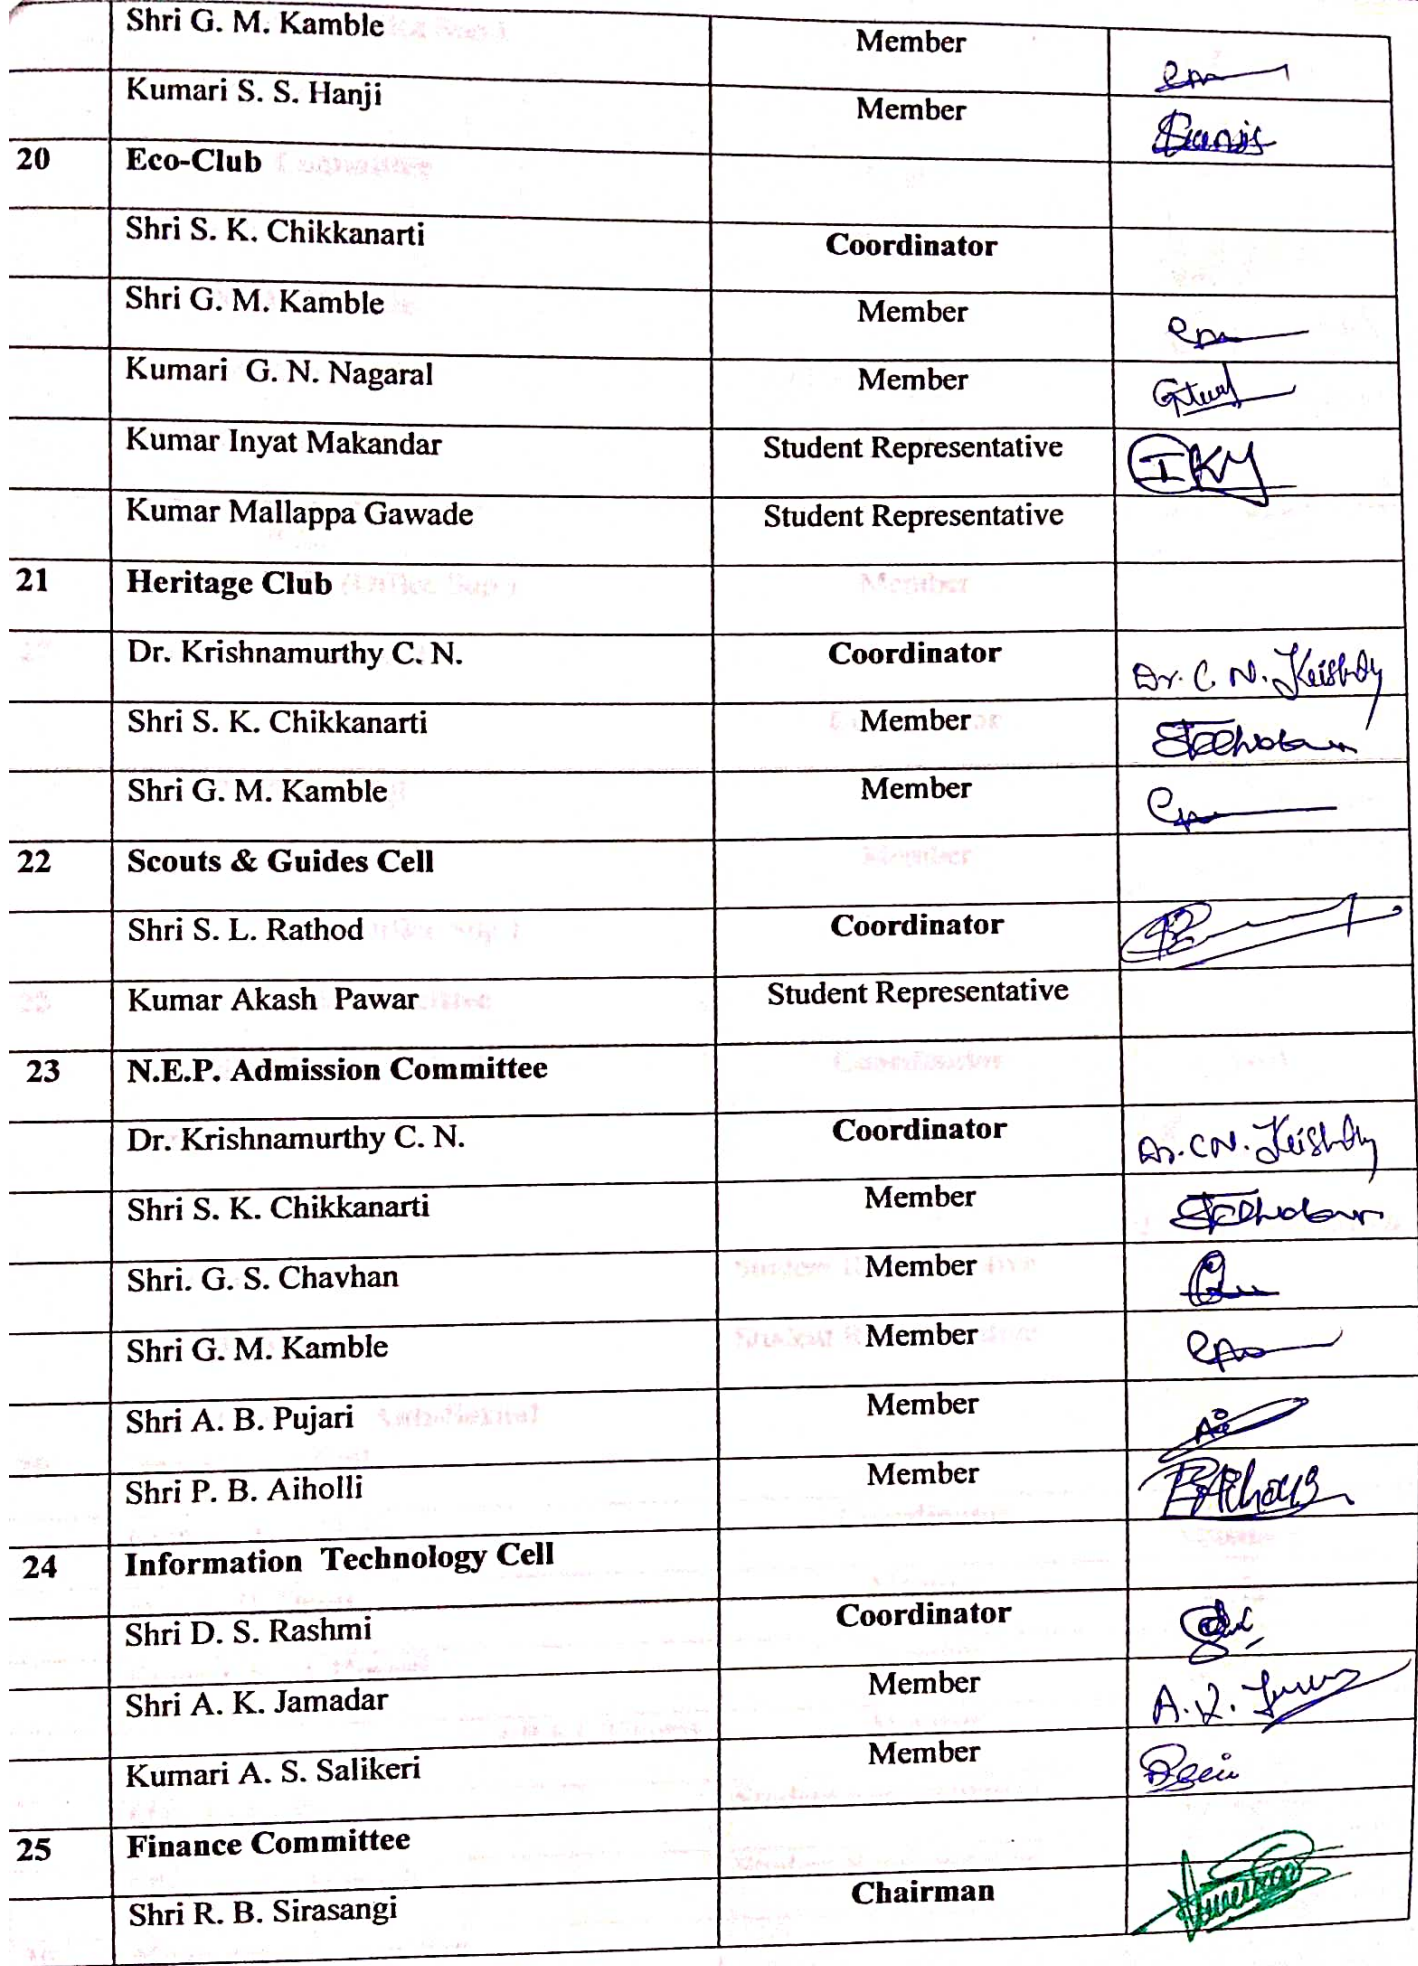 Shri G. M. Kamble Member
Kumari S. S. Hanji Member
20 Eco-Club
Shri S. K. Chikkanarti Coordinator
Shri G. M. Kamble Member
Kumari G. N. Nagaral Member
Kumar Inyat Makandar Student Representative IKM
Kumar Mallappa Gawade Student Representative
21 Heritage Club
Dr. Krishnamurthy C. N. Coordinator Dr. C. N.
Shri S. K. Chikkanarti Member
Shri G. M. Kamble Member
22 Scouts & Guides Cell
Shri S. L. Rathod Coordinator
Kumar Akash Pawar Student Representative
23 N.E.P. Admission Committee
Dr. Krishnamurthy C. N. Coordinator Dr. C N.
Shri S. K. Chikkanarti Member
Shri. G. S. Chavhan Member
Shri G. M. Kamble Member
Shri A. B. Pujari Member
Shri P. B. Aiholli Member
24 Information Technology Cell
Shri D. S. Rashmi Coordinator
Shri A. K. Jamadar Member A. K.
Kumari A. S. Salikeri Member
25 Finance Committee
Shri R. B. Sirasangi Chairman